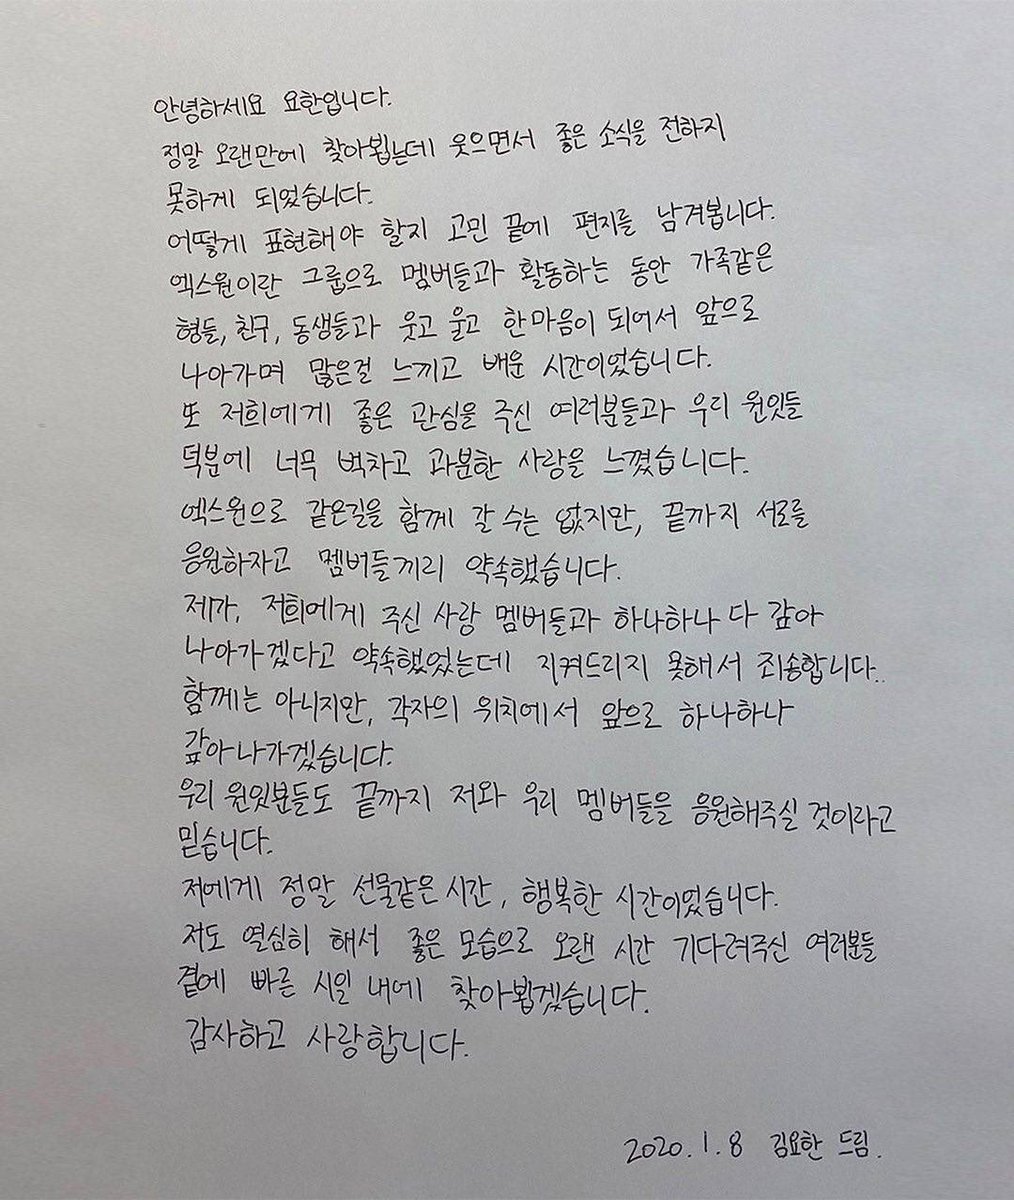 안녕하세요 요한입니다.
정말 오랜만에 찾아뵙는데 웃으면서 좋은 소식을 전하지
못하게 되었습니다.
어떻게 표현해야 할지 고민 끝에 편지를 남겨봅니다.
엑스원이란 그룹으로 멤버들과 활동하는 동안 가족같은
형들, 친구, 동생들과 웃고 울고 한마음이 되어서 앞으로
나아가며 많은걸 느끼고 배운 시간이었습니다.
또 저희에게 좋은 관심을 주신 여러분들과 우리 원잇들
덕분에 너무 벅차고 과분한 사랑을 느꼈습니다.
엑스원으로 같은길을 함께 갈 수는 없지만, 끝까지 서로를
응원하자고 멤버들끼리 약속했습니다.
제가, 저희에게 주신 사랑 멤버들과 하나하나 다 갚아
나아가겠다고 약속했었는데 지켜드리지 못해서 죄송합니다..
함께는 아니지만, 각자의 위치에서 앞으로 하나하나
갚아나가겠습니다.
우리 원잇분들도 끝까지 저와 우리 멤버들을 응원해주실 것이라고
믿습니다.
저에게 정말 선물같은 시간, 행복한 시간이었습니다.
저도 열심히 해서 좋은 모습으로 오랜 시간 기다려주신 여러분들
곁에 빠른 시일 내에 찾아뵙겠습니다.
감사하고 사랑합니다.
2020.1.8 김요한 드림.